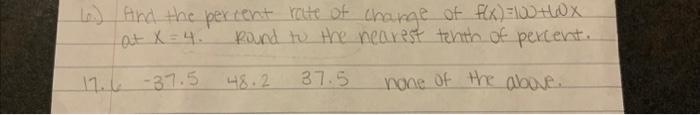 6.) Find the percent rate of change of f(x)=100+60x
at x=4. Round to the nearest tenth of percent.
17.6 -37.5 48.2 37.5 none of the above.